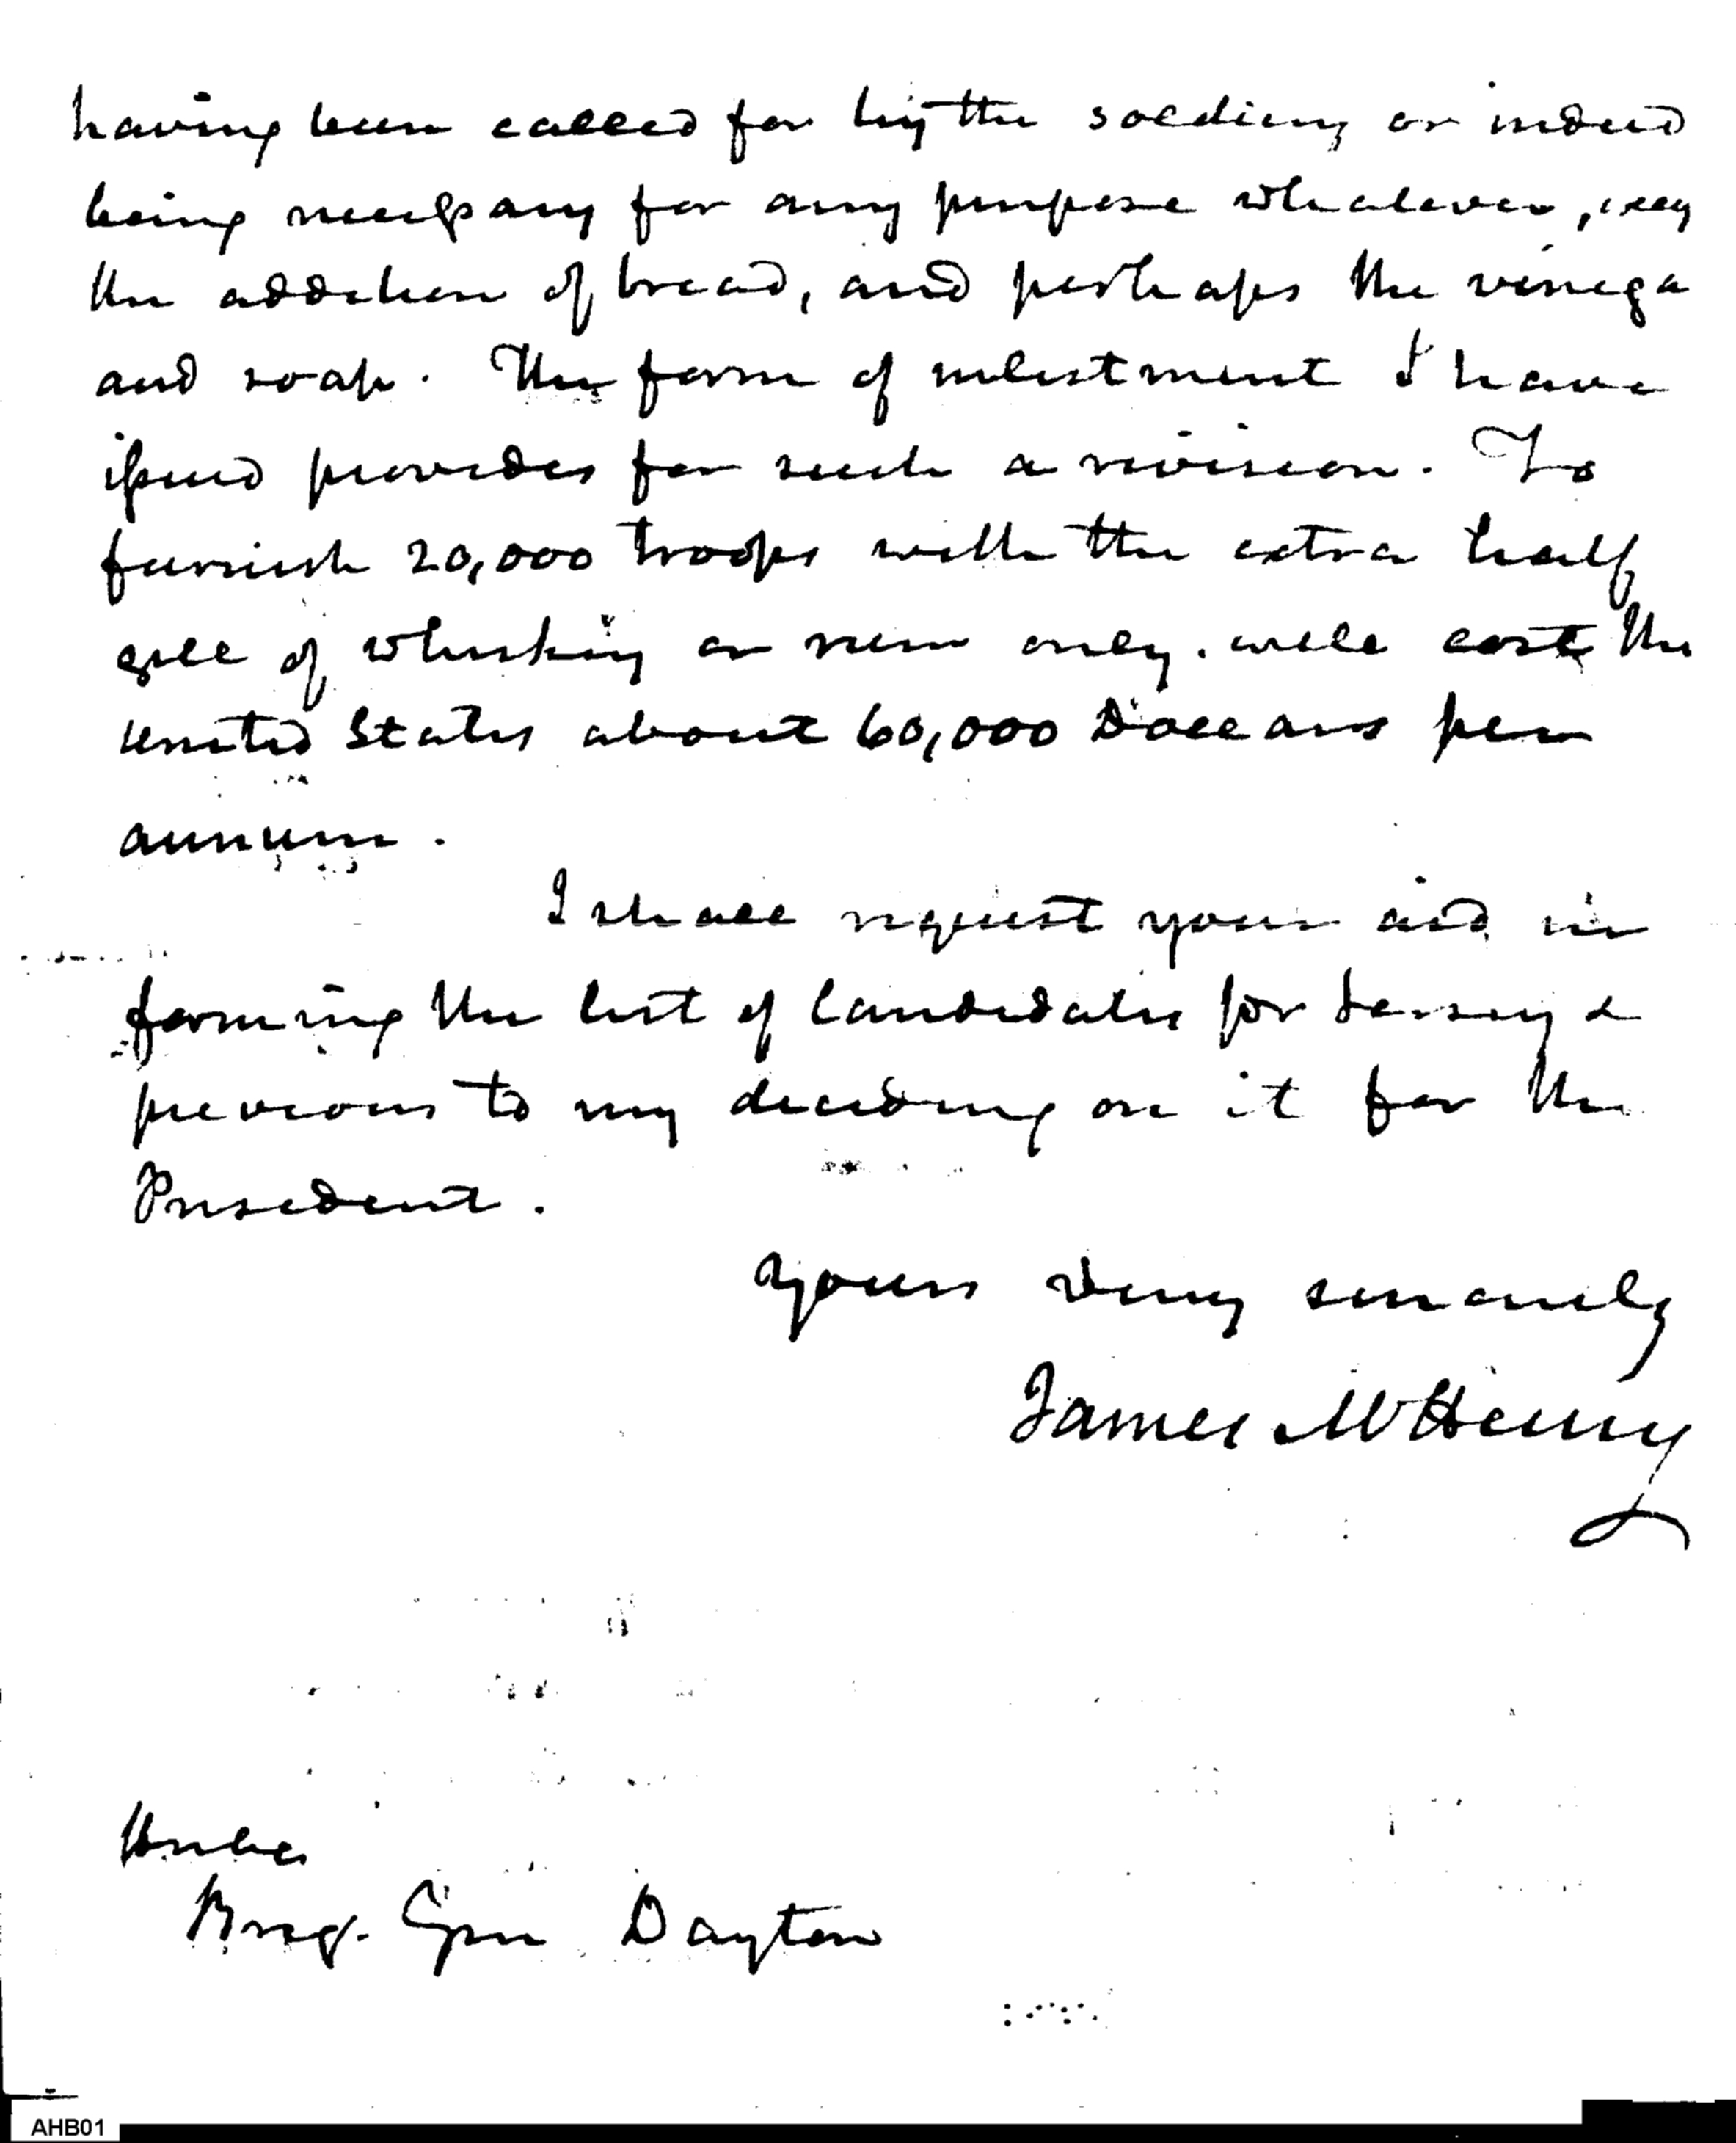 having been called for by the soldiery or indeed
being necessary for any purpose whatever,
the addition of bread, and perhaps the vinega
and soap. The form of inlistment I have
issued provides for such a revision. To
furnish 20,000 troops with the extra half
gill of whiskey or rum only. will cost the
United States about 60,000 Dollars per
annum.
I shall request your aid in
forming the list of Candidates for Jersey &
previous to my deciding on it for the
President.
Yours very sincerely
James McHenry
Honble
Brig. Gen Dayton
AHB01